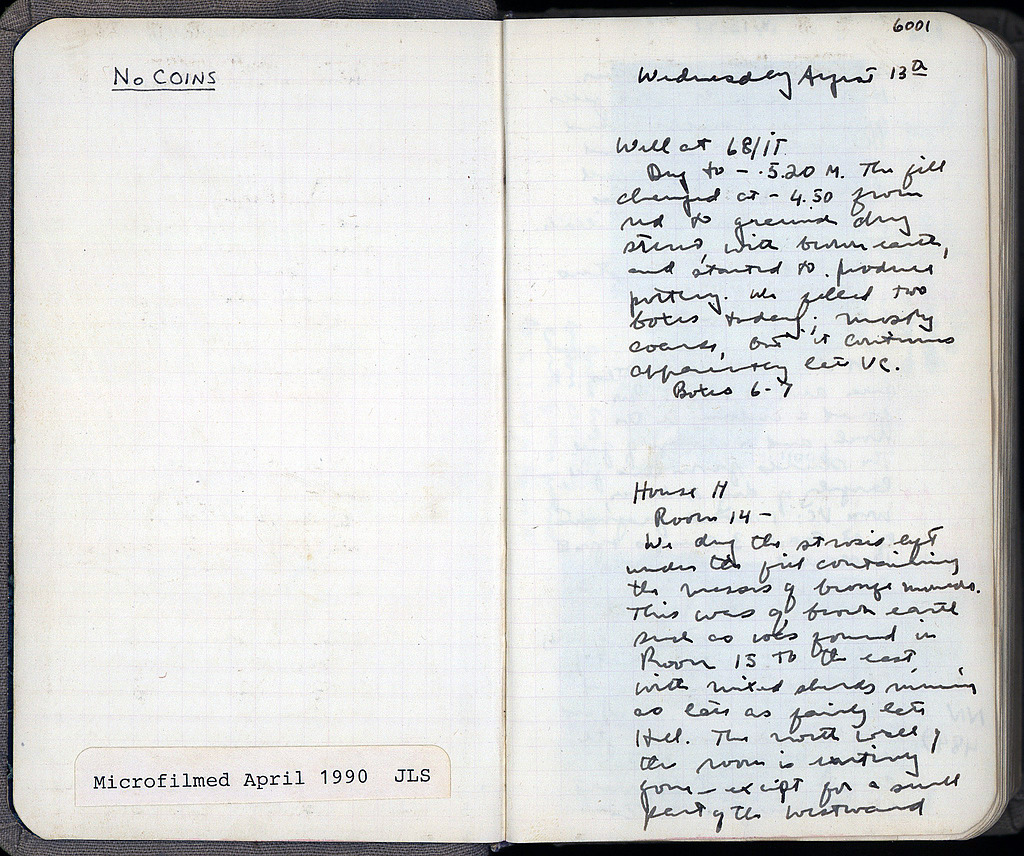 No COINS
Microfilmed April 1990 JLS
6001
Wednesday August 13th
Well at 68/ΙΤ
Dug to -5.20 M. The fill
changed at -4.50 from
red to greenish dug
with brown earth,
and started to produce
pottery. We filled two
boxes today; mostly
coarse, but it continues
apparently late VC.
Boxes 6-7
House H
Room 14 -
We dug the strosis left
under the fill containing
the masses of bronze
This was of brown earth
such as was found in
Room 15 to the east,
with mixed sherds running
as late as fairly late
Hell. The north wall of
the room is entirely
gone - except for a small
part of the westward